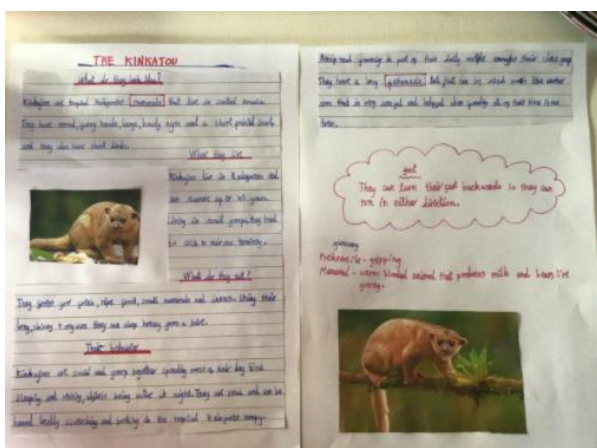 THE KINKATOU
What do they look like?
Kinkajous are tropical Rainforest mammals that live in central America.
They have round, furry heads, large, beady eyes and a short pointed snout
and they also have short limbs.
Where they live
Kinkajous live in Rainforests and
can survive up to 40 years.
Living in small groups, they tend
to stick to their own territory.
What do they eat?
They prefer ripe fruit, small mammals and insects. Using their
long, skinny tongues they can slurp honey from a hive.
Their behavior
Kinkajous are social and group together spending most of their day time
sleeping and resting, before being active at night. They are and can be
heard loudly screeching and barking in the tropical Rainforest canopy.
grooming is part of their daily amongst their close group.
They have a long prehensile tail that can be used like another
arm that is very and helpful when spending all of their time in the
trees.
fact
They can turn their feet backwards so they can
run in either direction.
glossary
Prehensile - gripping
Mammal - warm blooded animal that produces milk and bears live
young.